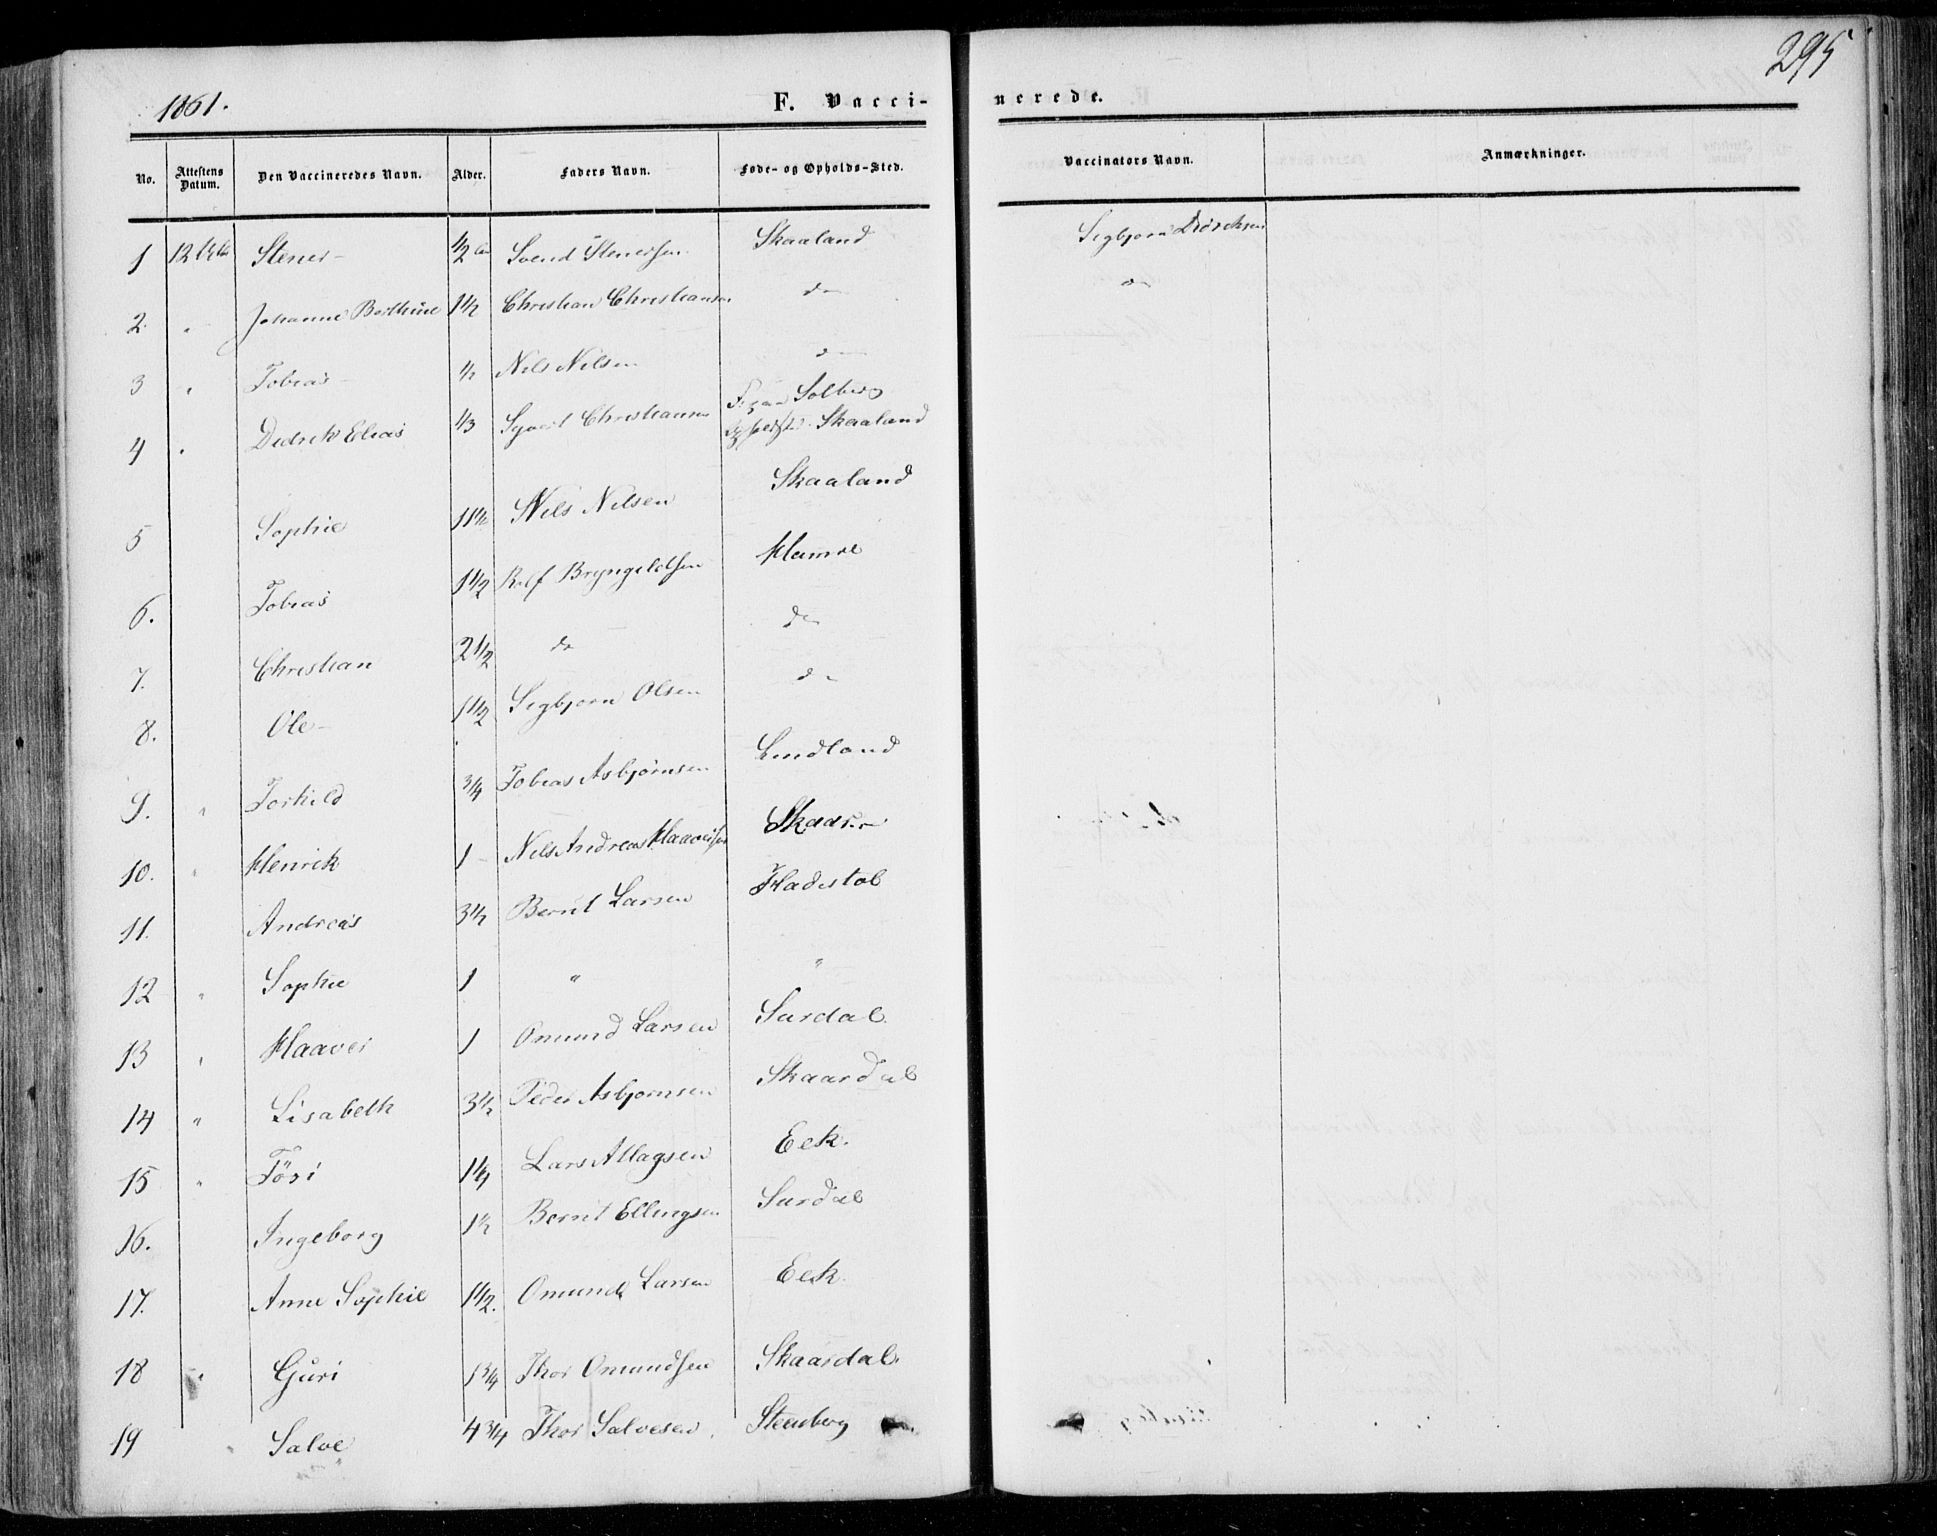 295
1861. F. Vacci- nerede.
No. Attestens Datum. Den Vaccineredes Navn. Alder. Faders Navn. Føde- og Opholds-Sted. Vaccinators Navn. Anmærkninger.
1 12 Stener 1/2 Svend Stenersen Skaaland Sigbjørn
2. " Johanne Berthine 1 1/2 Christian Christiansen do do
3 " Tobias 1/2 Nils Nilsen do
4 " Didrik Elias 1/3 Syvert Christiansen Solberg
Skaaland
5 Sophie 11 1/2 Nils Nilsen Skaaland
6. Tobias 1 1/2 Rolf Bryngelsen Hamre
7. Christian 2 1/2 do do
8. Ole 1 1/2 Sigbjørn Olsen do
9. " Torkild 3/4 Tobias Asbjørnsen Lindland
10. " Henrik 1 Nils Andreas Haaversen
11. Andreas 3 1/2 Bernt Larsen Fladestøl
12 " Sophie 1 " "
13 " Haaver 1 Omund Larsen Surdal
14 " Lisabeth 3 1/2 Peder Asbjørnsen Skaardal
15 " 1 1/4 Lars Allagsen Eek.
16. Ingeborg 1 1/2 Bernt Ellingsen Surdal
17. Anne Sophie 1 1/2. Omund Larsen Eek.
18 " Guri 1 3/4 Thor Omundsen Skaardal.
19 Salve 4 3/4 Thor Salvesen Steenberg